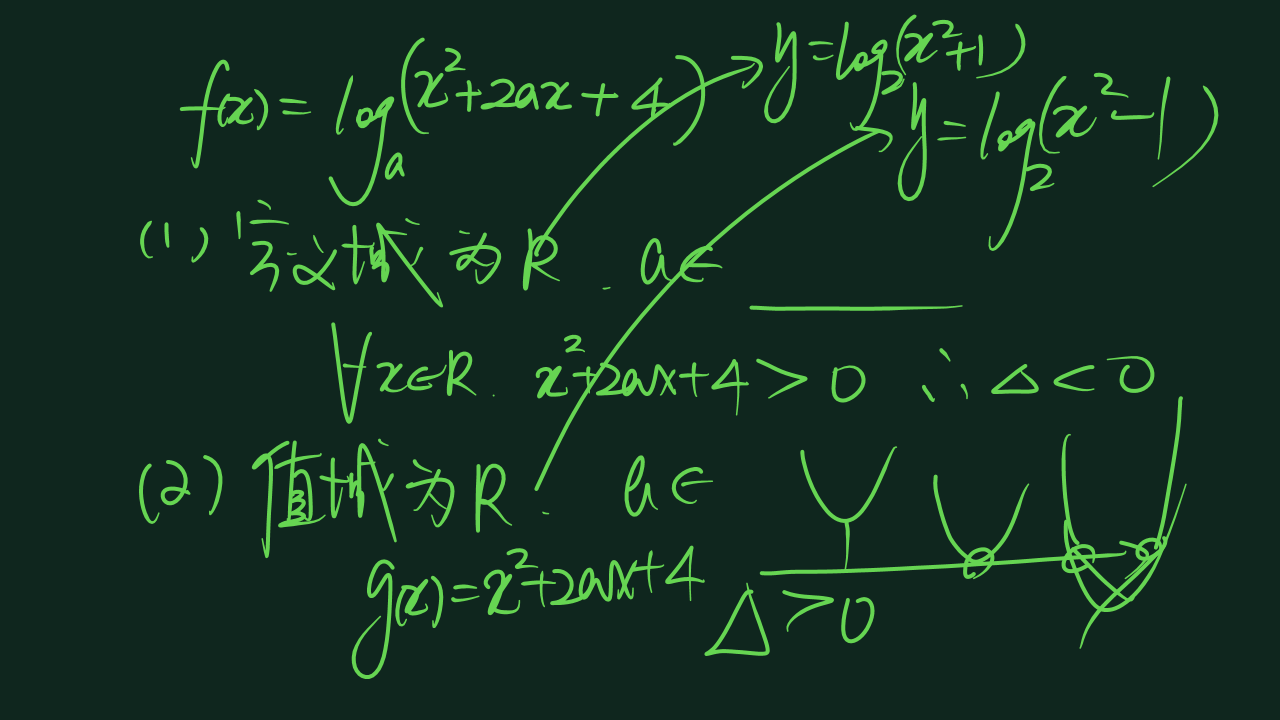 f(x) = log_a(x²+2ax+4)
y=log_2(x²+1)
y=log_2(x²-1)
(1) 定义域为R. a∈
∀x∈R. x²+2ax+4>0 ∴Δ<0
(2) 值域为R. a∈
g(x)=x²+2ax+4
Δ>0